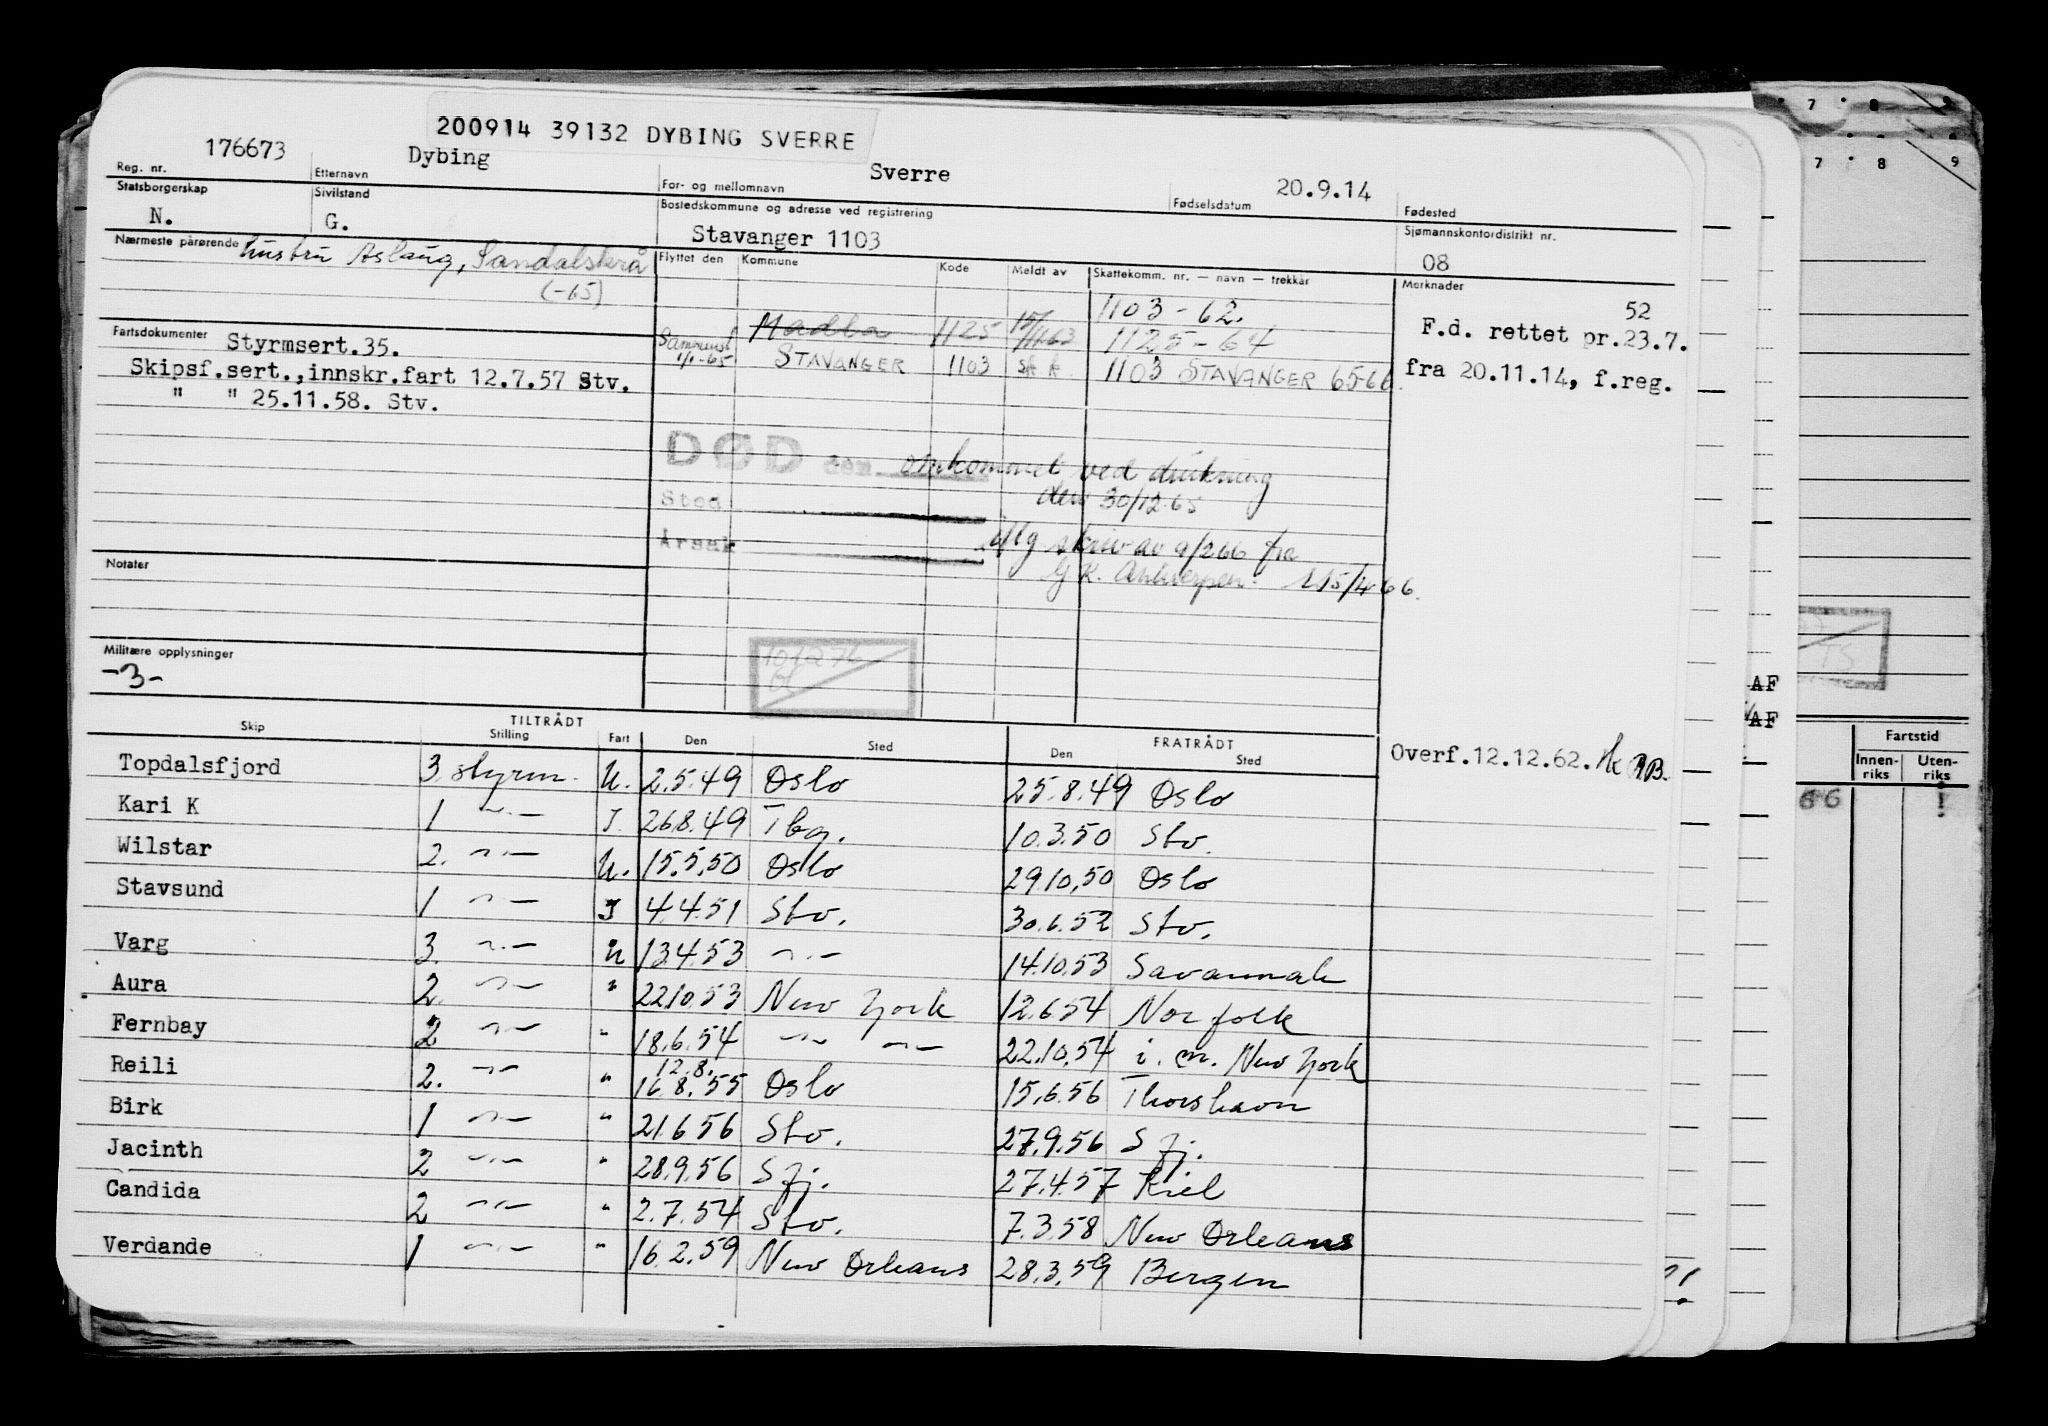 200914 39132 DYBING SVERRE
Reg. nr. 176673 Etternavn Dybing For- og mellomnavn Sverre Fødselsdatum 20.9.14 Fødested
Statsborgerskap N. Sivilstand G. Bostedskommune og adresse ved registrering Stavanger 1103 Sjømannskontordistrikt nr. 08
Nærmeste pårørende hustru Aslaug, Sandalskrå
(-65)
Flyttet den Kommune Kode Meldt av Skattekomm. nr. — navn — trekkår Merknader
1103-62.
Madla 1125 1125-64
Sammensl. 1/1-65 STAVANGER 1103 1103 STAVANGER 65-66.
52
F.d. rettet pr.23.7.
fra 20.11.14, f.reg.
Fartsdokumenter Styrmsert.35.
Skipsf.sert.,innskr.fart 12.7.57 Stv.
" " 25.11.58. Stv.
DØD den omkommet ved drukning
den 30/12-65
Sted
Årsak iflg. skriv av 9/2 66 fra
GK. Antwerpen. 15/4 66.
Notater
Militære opplysninger
-3-
Skip TILTRÅDT Stilling Fart Den Sted FRATRÅDT Den Sted
Overf.12.12.62.
Topdalsfjord 3. styrm. U. 2.5.49 Oslo 25.8.49 Oslo
Kari K 1 —"— I. 26.8.49 Tbg. 10.3.50 Stv.
Wilstar 2. —"— U. 15.5.50 Oslo 29.10.50 Oslo
Stavsund 1 —"— I 4.4.51 Stv. 30.6.52 Stv.
Varg 3. —"— U 13.4.53 —"— 14.10.53 Savannah
Aura 2. —"— " 22.10.53 New York 12.6.54 Norfolk
Fernbay 2 —"— " 18.6.54 —"— —"— 22.10.54 i. m. New York
12.8.
Reili 2. —"— " 16.8.55 Oslo 15.6.56 Thorshavn
Birk 1 —"— " 21.6.56 Stv. 27.9.56 Sfj.
Jacinth 2 —"— " 28.9.56 Sfj. 27.4.57 Kiel
Candida 2 —"— " 2.7.54 Stv. 7.3.58 New Orleans
Verdande 1 —"— " 16.2.59 New Orleans 28.3.59 Bergen
7 8
7 8 9
AF
AF
Fartstid
Innenriks Utenriks
66